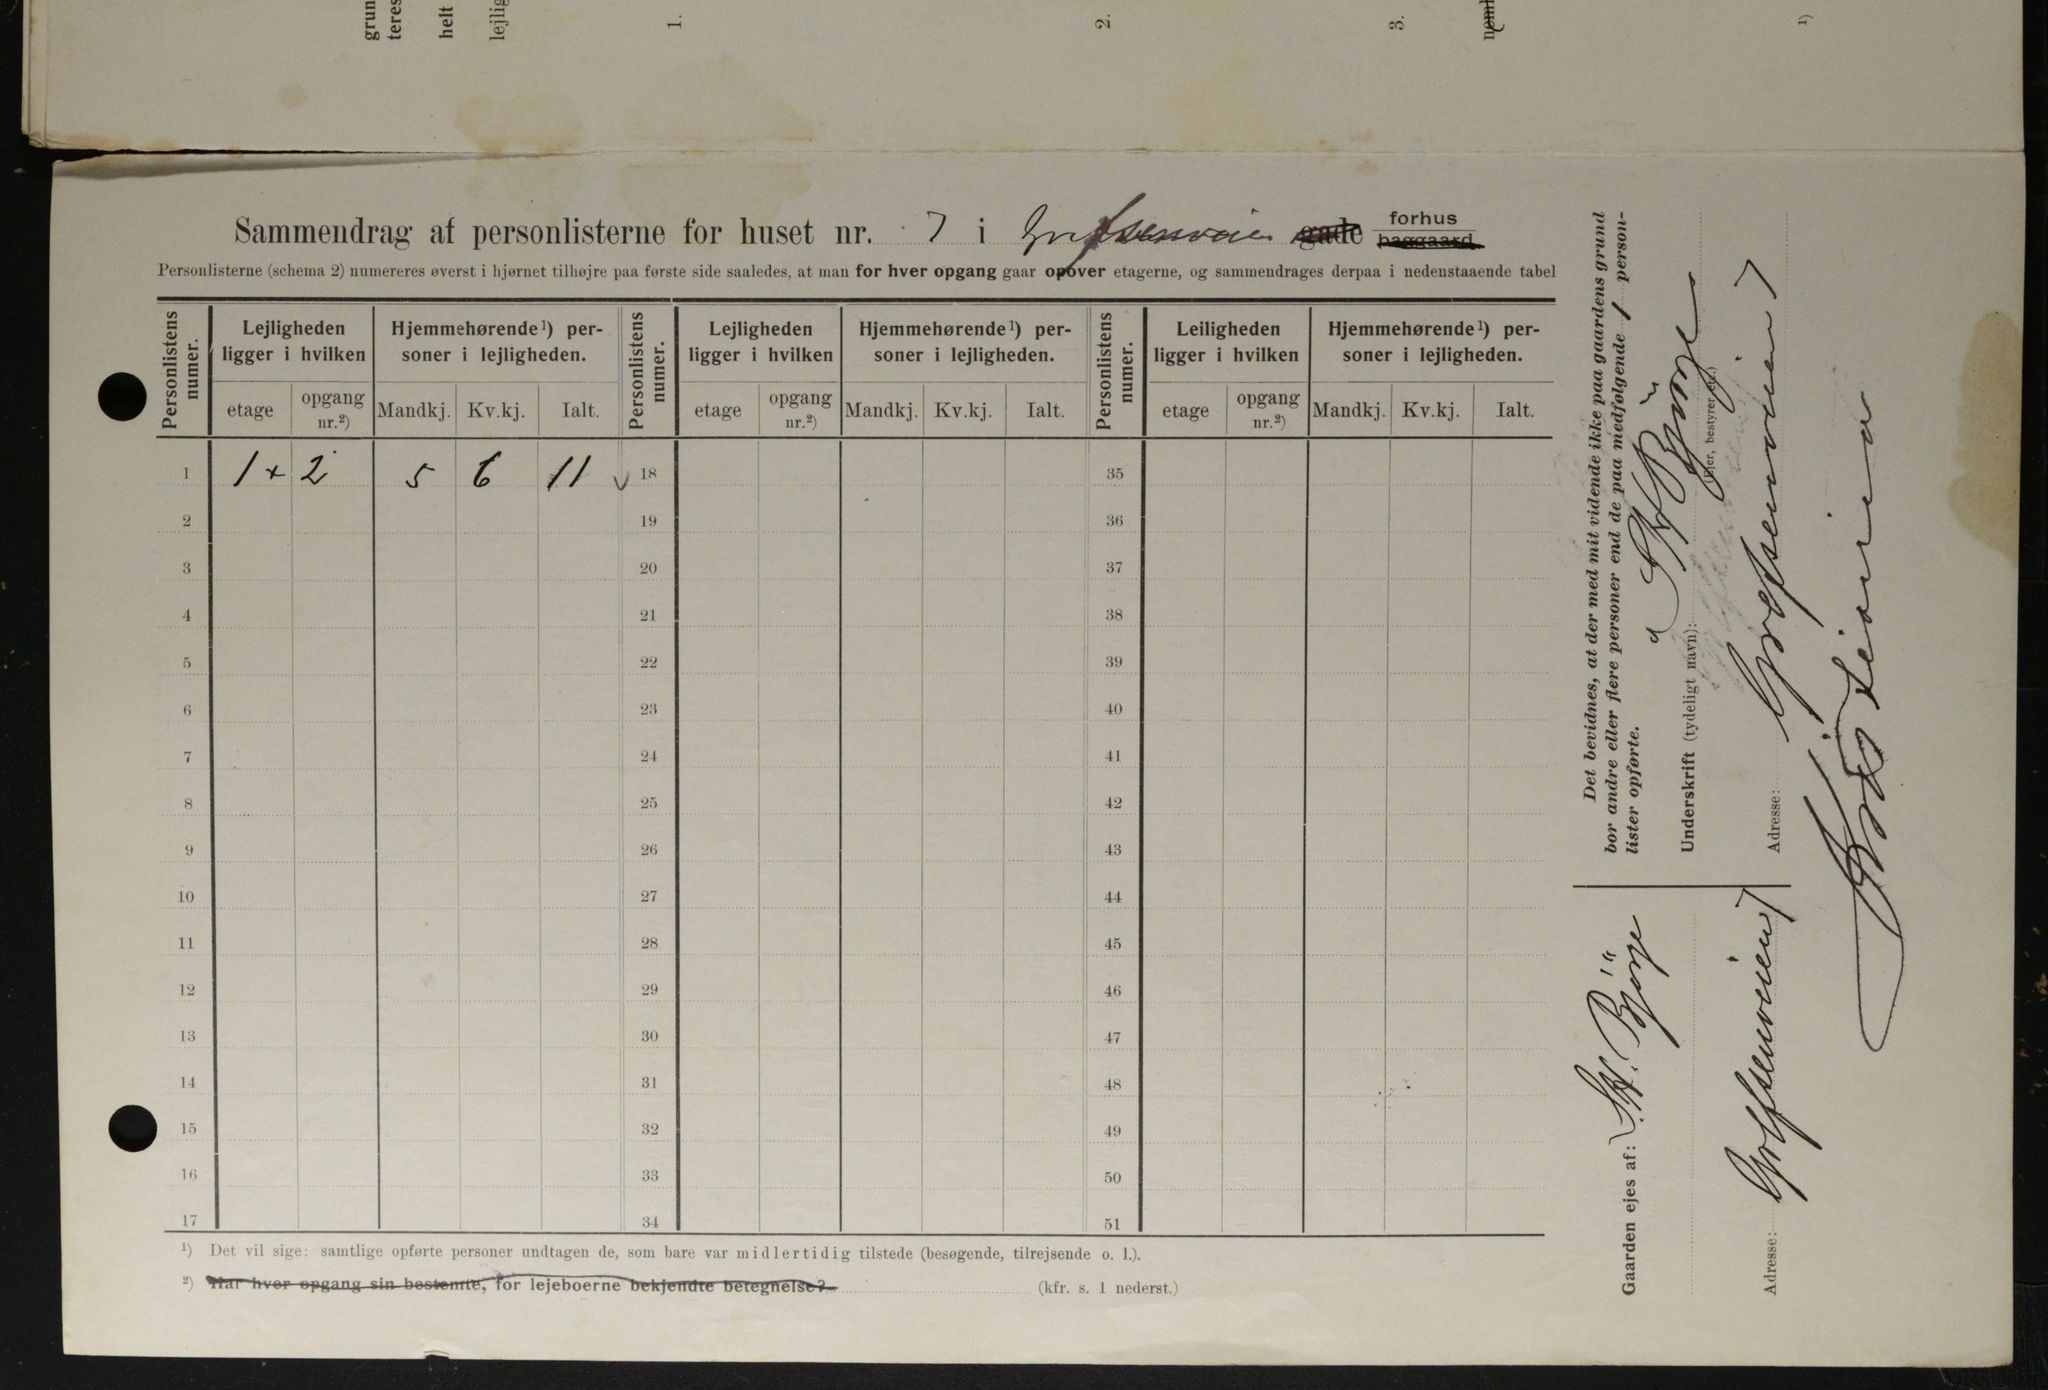 grun
teres
helt
lejlig
1.
2.
3.
1)
Sammendrag af personlisterne for huset nr. 7 i Grefsenveien gade forhus baggaard
Personlisterne (schema 2) numereres øverst i hjørnet tilhøjre paa første side saaledes, at man for hver opgang gaar opover etagerne, og sammendrages derpaa i nedenstaaende tabel
Personlistens numer. Lejligheden ligger i hvilken Hjemmehørende¹) personer i lejligheden. Personlistens numer. Lejligheden ligger i hvilken Hjemmehørende¹) personer i lejligheden. Personlistens numer. Leiligheden ligger i hvilken Hjemmehørende¹) personer i lejligheden.
etage opgang nr.²) Mandkj. Kv.kj. Ialt. etage opgang nr.²) Mandkj. Kv.kj. Ialt. etage opgang nr.²) Mandkj. Kv.kj. Ialt.
1 1 + 2 5 6 11 18 35
2 19 36
3 20 37
4 21 38
5 22 39
6 23 40
7 24 41
8 25 42
9 26 43
10 27 44
11 28 45
12 29 46
13 30 47
14 31 48
15 32 49
16 33 50
17 34 51
¹) Det vil sige: samtlige opførte personer undtagen de, som bare var midlertidig tilstede (besøgende, tilrejsende o. l.).
²) Har hver opgang sin bestemte, for lejeboerne bekjendte betegnelse? (kfr. s. 1 nederst.)
Det bevidnes, at der med mit vidende ikke paa gaardens grund
bor andre eller flere personer end de paa medfølgende 1 person-
lister opførte.
Underskrift (tydeligt navn):
(Ejer, bestyrer etc.)
Adresse: Grefsenveien 7
Kristiania
Gaarden ejes af:
Adresse: Grefsenveien 7